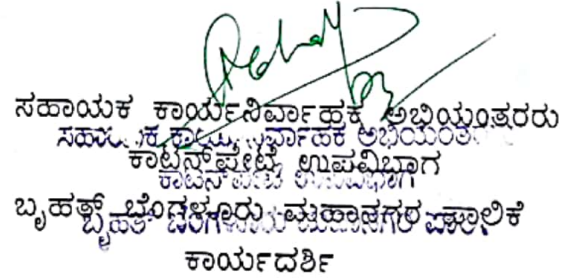 ಸಹಾಯಕ ಕಾರ್ಯನಿರ್ವಾಹಕ ಅಭಿಯಂತರರು
ಸಹಾಯಕ ಕಾರ್ಯನಿರ್ವಾಹಕ ಅಭಿಯಂತ
ಕಾಟನ್‌ಪೇಟೆ ಉಪವಿಭಾಗ
ಕಾಟನ್‌ಪೇಟೆ ಉಪವಿಭಾಗ
ಬೃಹತ್ ಬೆಂಗಳೂರು ಮಹಾನಗರ ಪಾಲಿಕೆ
ಬೃಹತ್ ಬೆಂಗಳೂರು ಮಹಾನಗರ ಪಾಲಿಕೆ
ಕಾರ್ಯದರ್ಶಿ